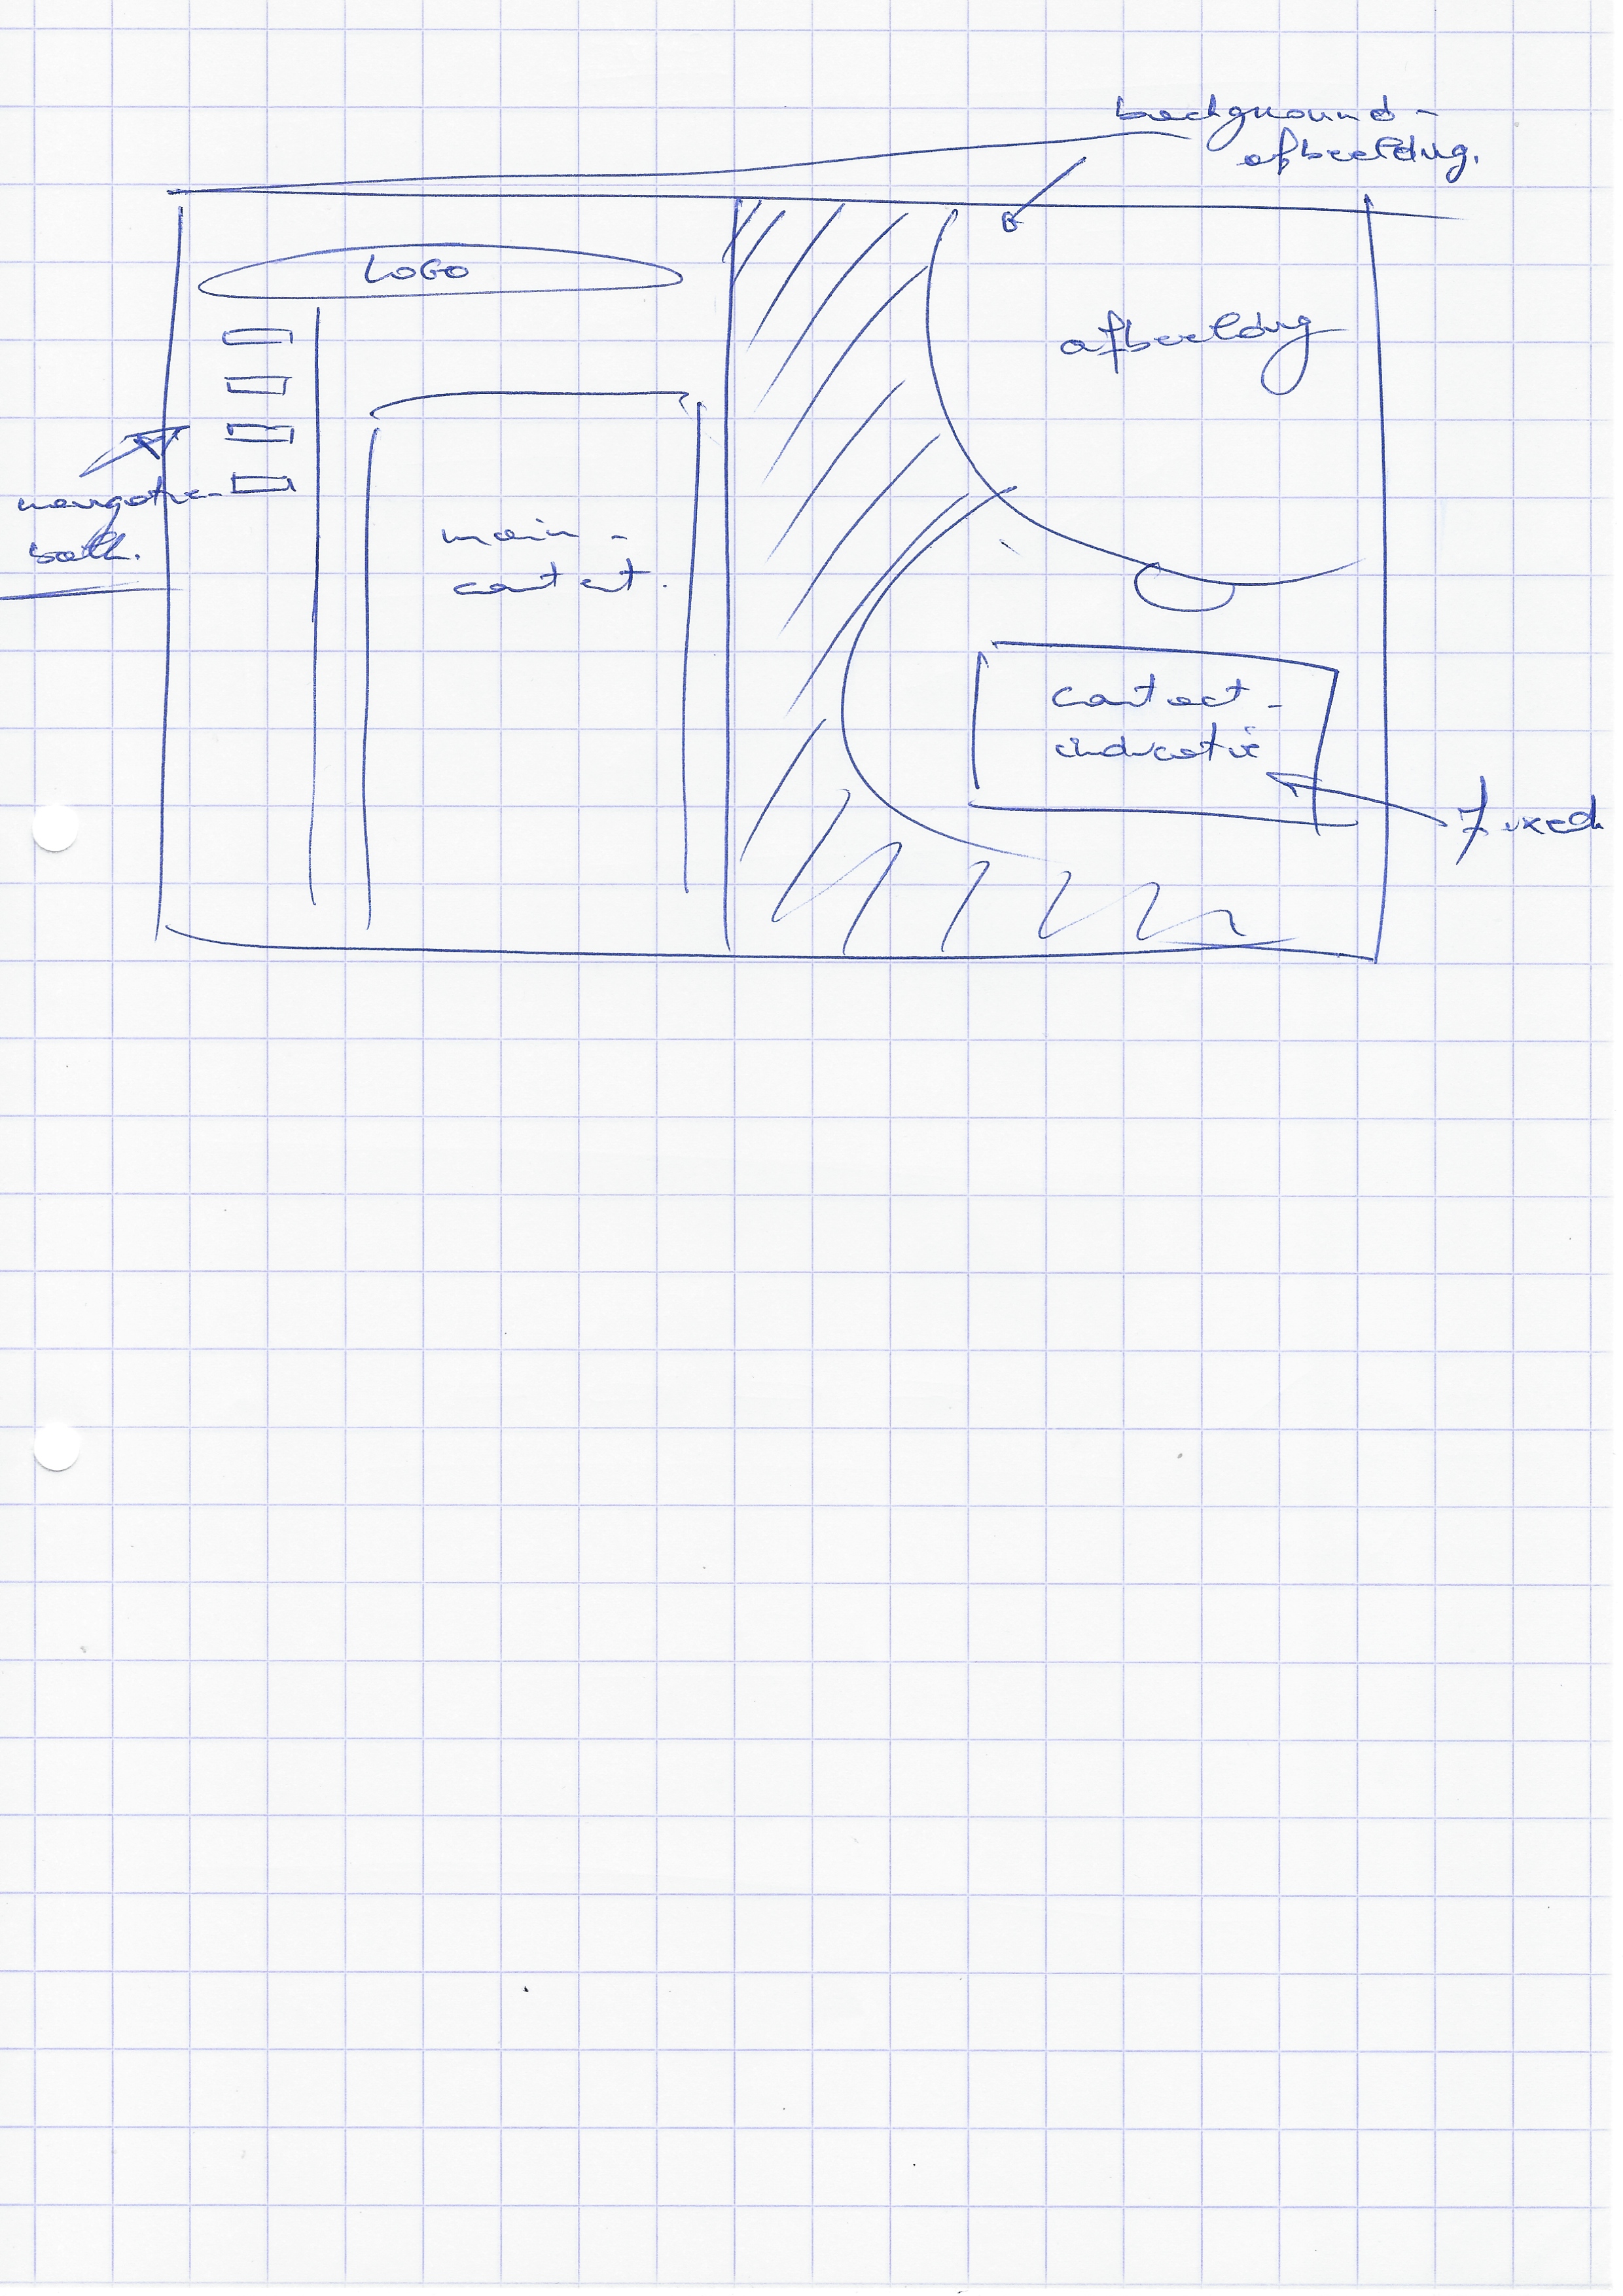 background-
afbeelding.
LOGO
afbeelding
navigatie-
balk.
main-
content.
contact-
indicatie
Fixed